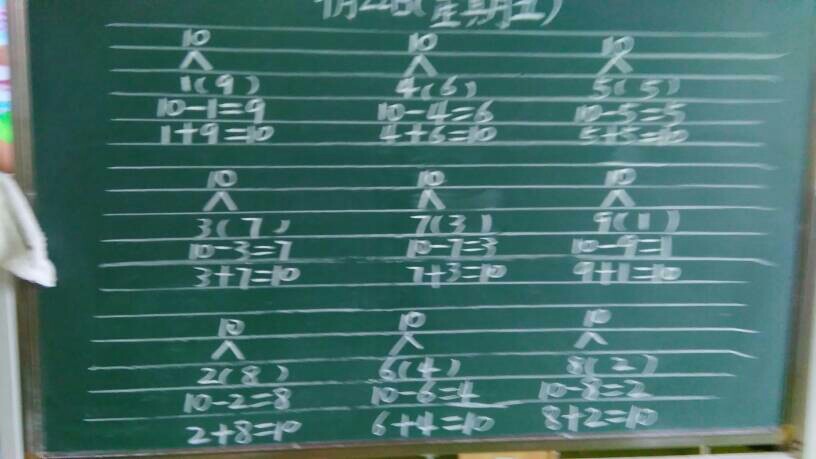 月22日(星期五)
10 10 10
1(9) 4(6) 5(5)
10-1=9 10-4=6 10-5=5
1+9=10 4+6=10 5+5=10
10 10 10
3(7) 7(3) 9(1)
10-3=7 10-7=3 10-9=1
3+7=10 7+3=10 9+1=10
10 10 10
2(8) 6(4) 8(2)
10-2=8 10-6=4 10-8=2
2+8=10 6+4=10 8+2=10